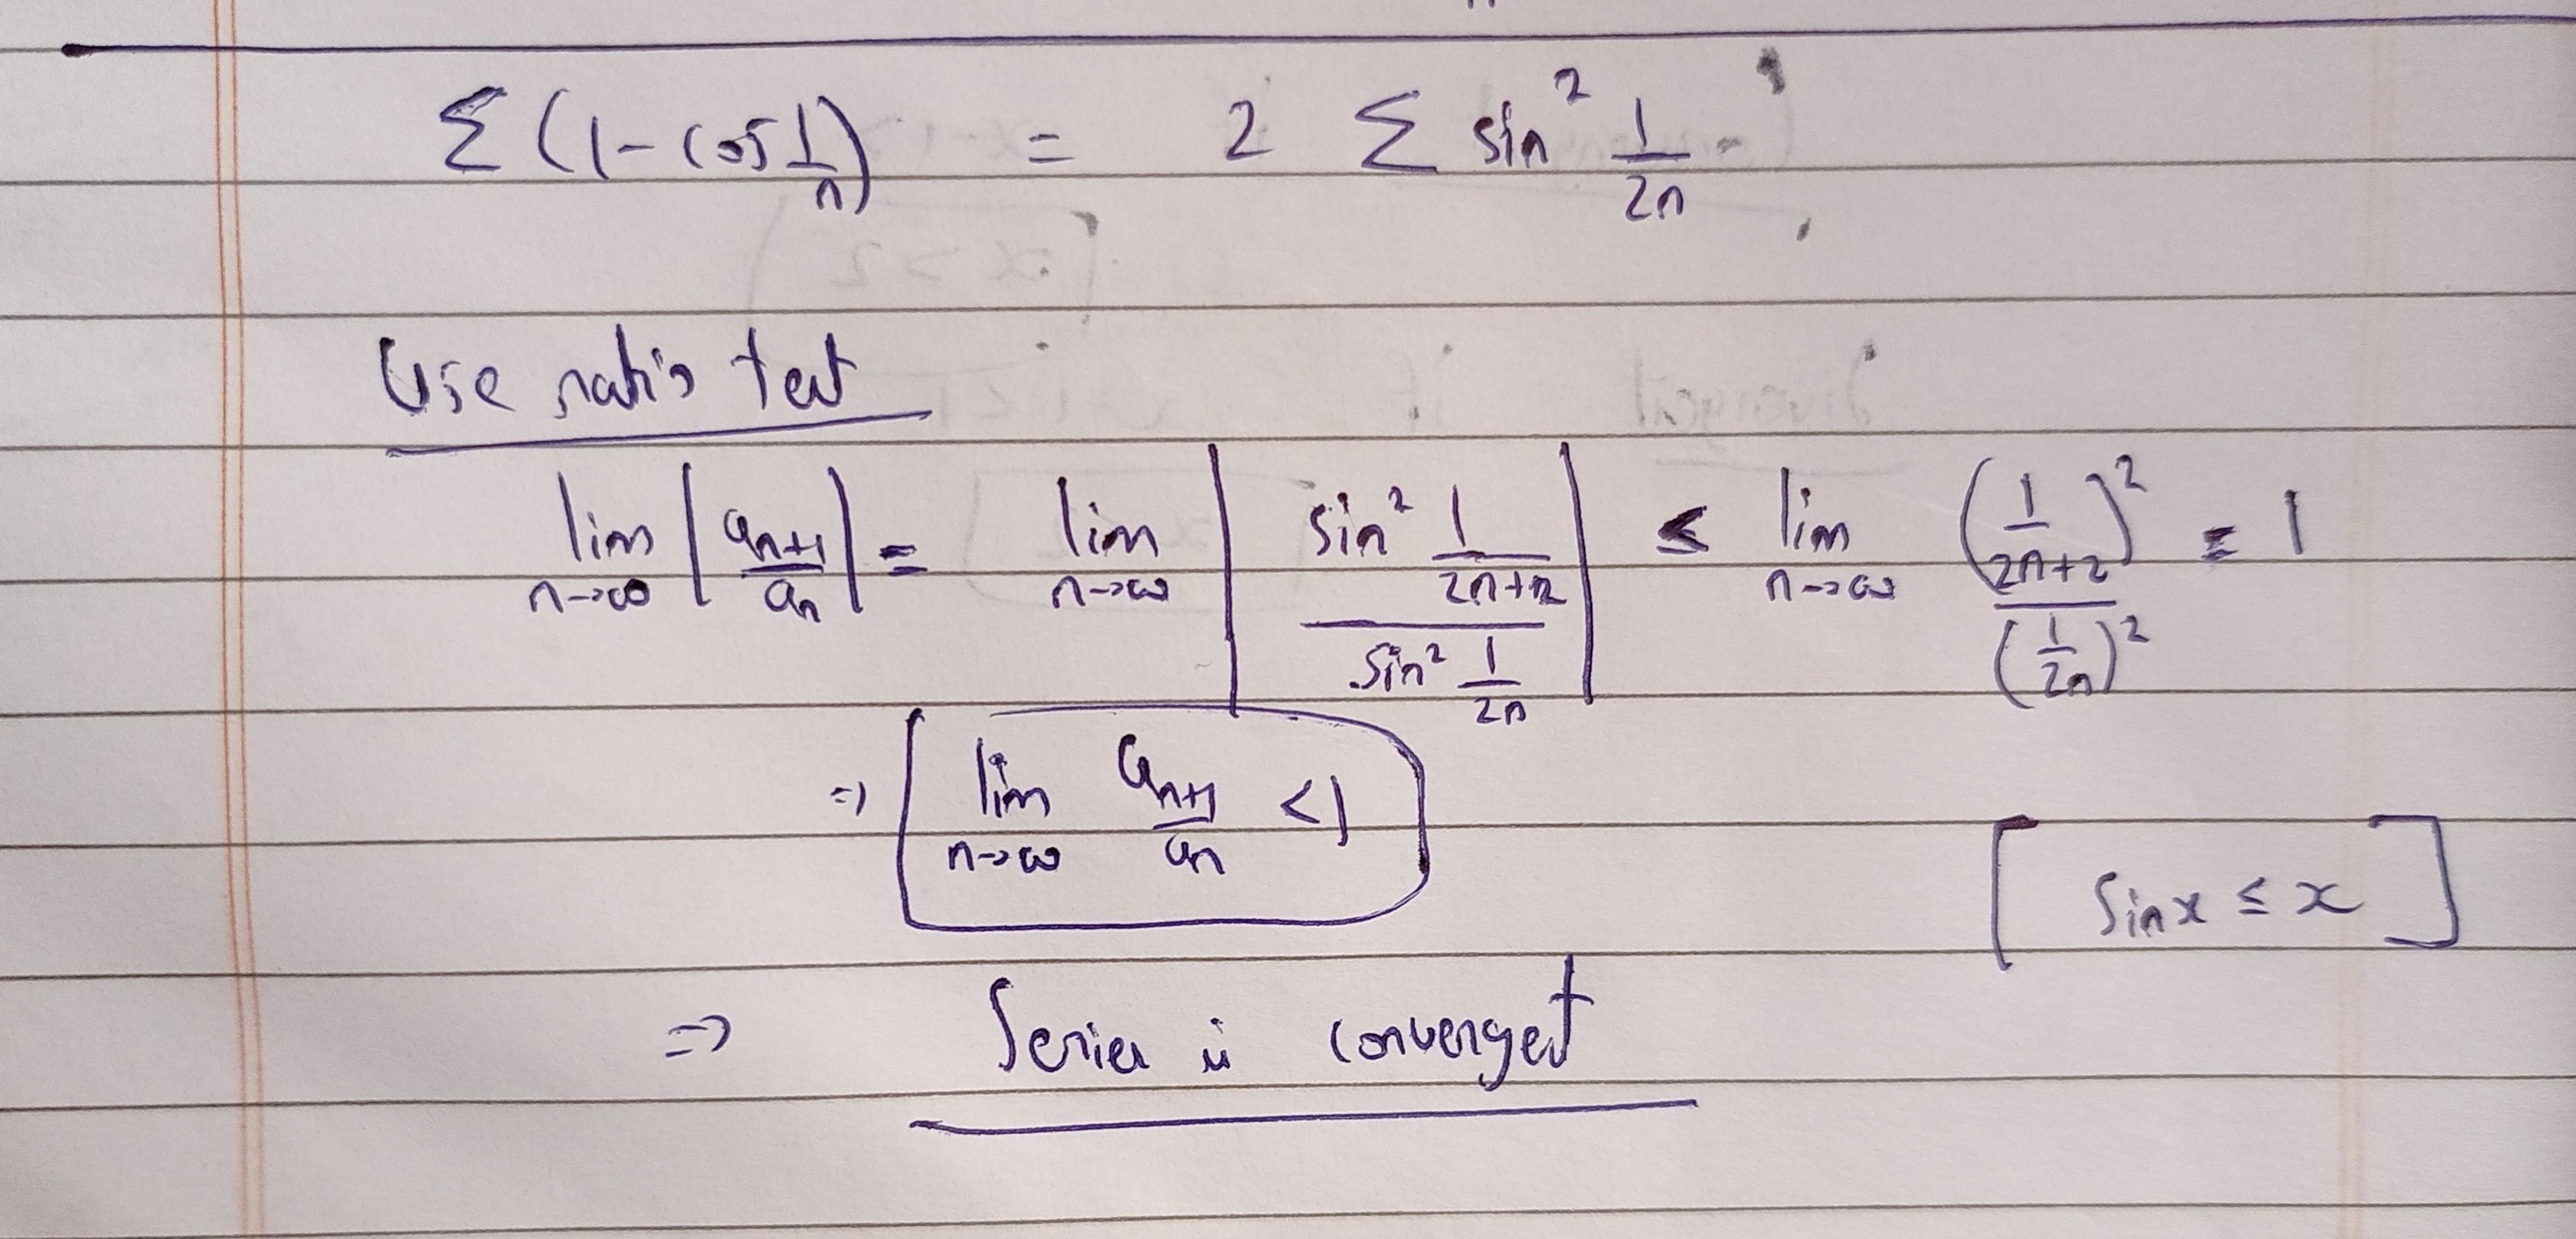 Σ (1 - cos 1/n) = 2 Σ sin² 1/2n
Use ratio test
lim n→∞ |aₙ₊₁/aₙ| = lim n→∞ |sin² 1/(2n+2) / sin² 1/2n| ≤ lim n→∞ (1/(2n+2))² / (1/2n)² = 1
⇒ lim n→∞ aₙ₊₁/aₙ < 1
[ sin x ≤ x ]
⇒ Series is convergent